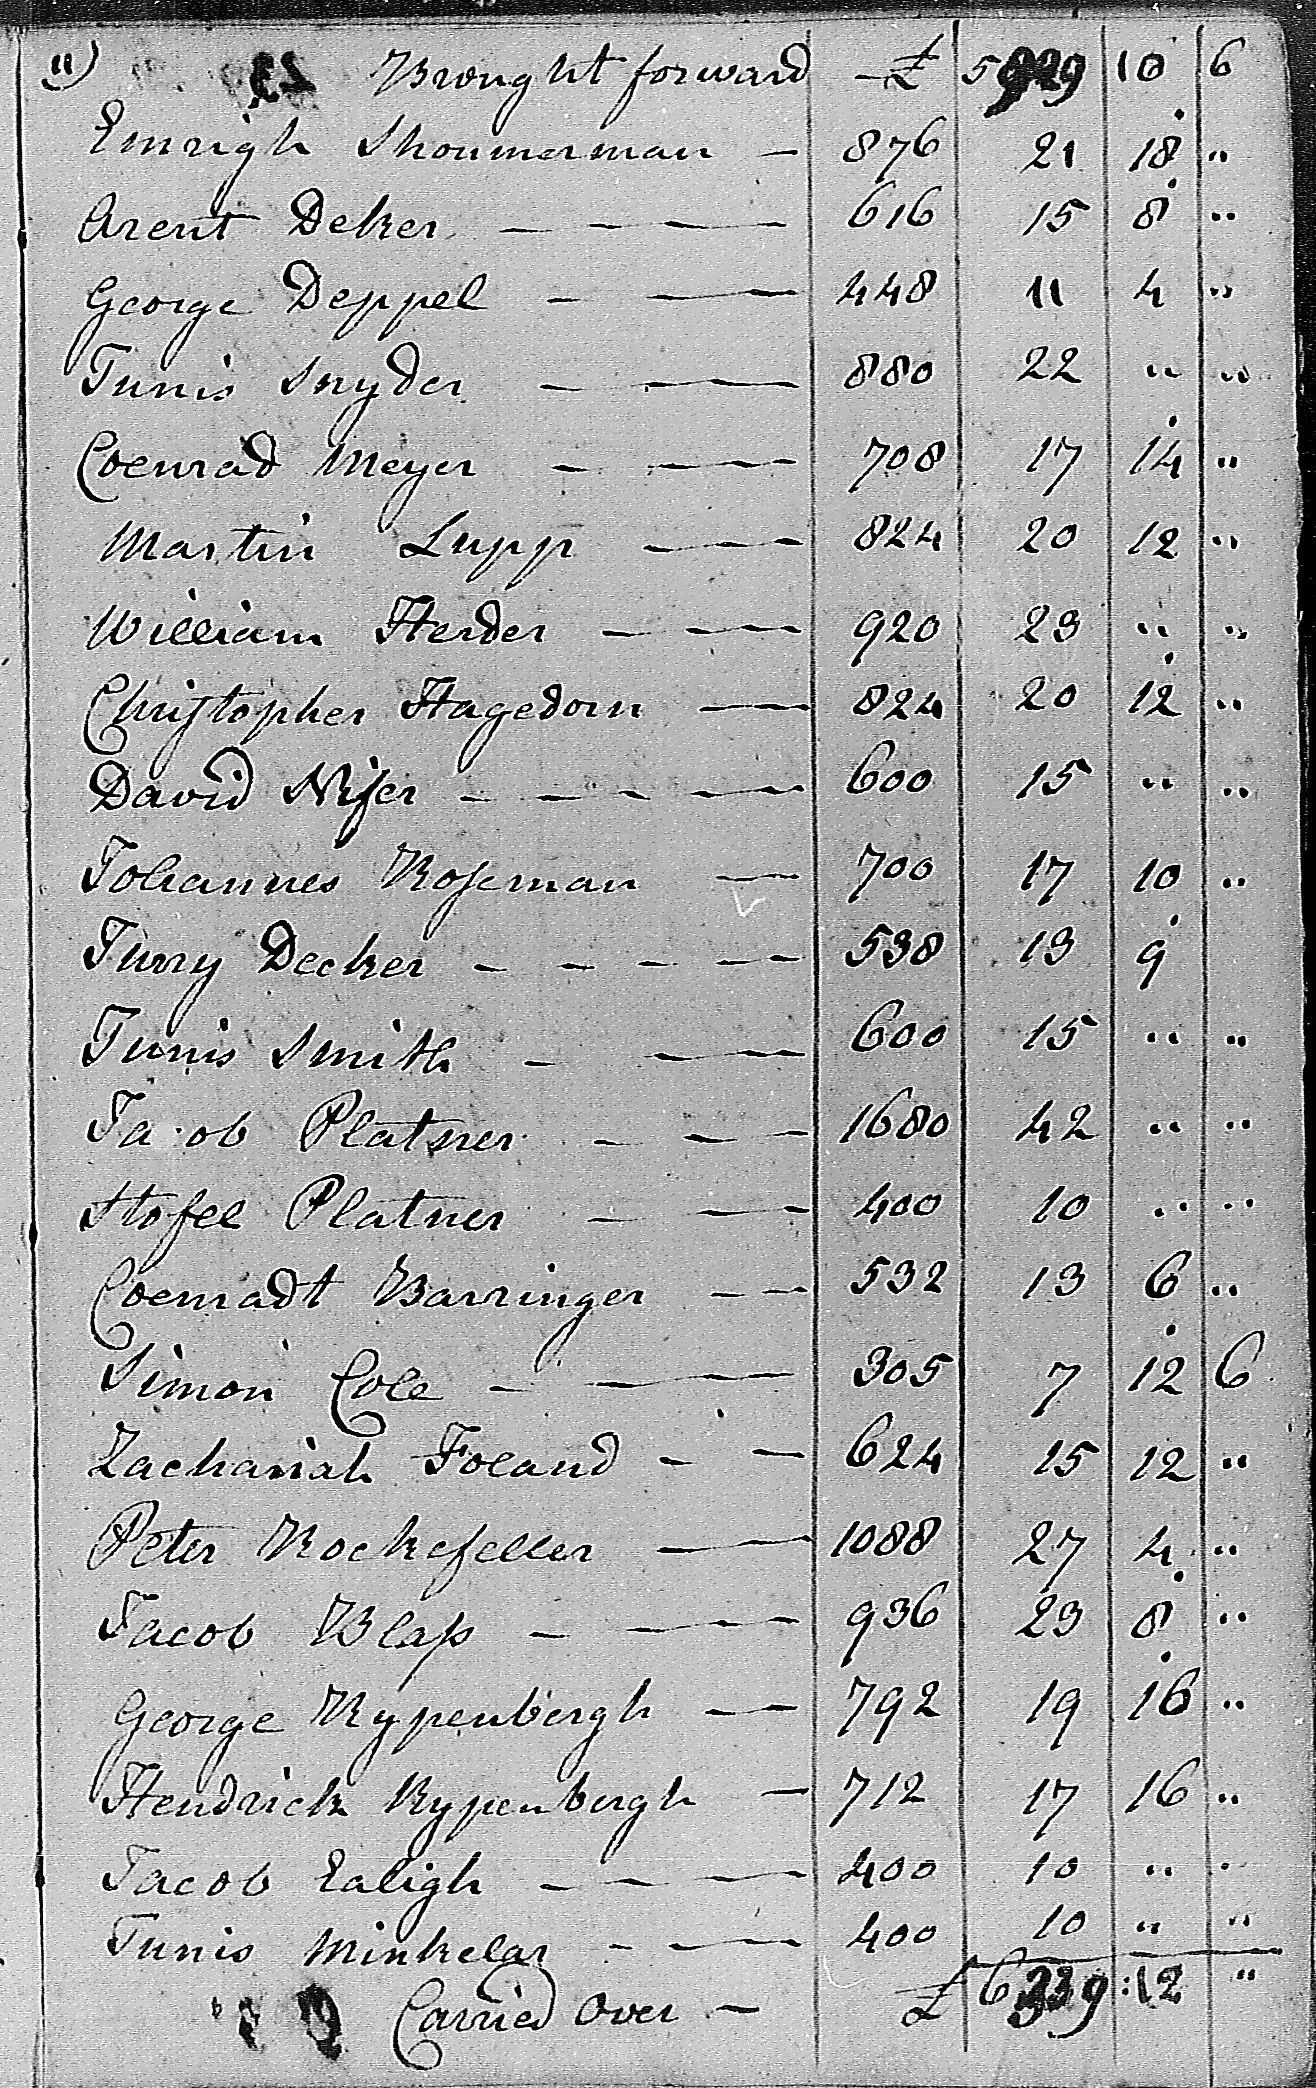 11) Brought forward — £ 5929 10 6
Emrigh Shoumerman — 876 21 18 "
Arent Deker — — — 616 15 8 "
George Deppel — — 448 11 4 "
Tunis Snyder — — 880 22 " "
Coenrad Meyer — — — 708 17 14 "
Martin Lupp — — 824 20 12 "
William Herder — — — 920 23 " "
Christopher Hagedorn — 824 20 12 "
David Niser — — — — 600 15 " "
Johannes Roseman — 700 17 10 "
Jurry Decker — — — — 538 13 9
Tunis Smith — — — 600 15 " "
Jacob Platner — — — 1680 42 " "
Stofel Platner — — 400 10 " "
Coenradt Barringer — — 532 13 6 "
Simon Cole — — — 305 7 12 6
Zachariah Foland — — 624 15 12 "
Peter Rockefeller — 1088 27 4 "
Jacob Blass — — — 936 23 8 "
George Rypenbergh — — 792 19 16 "
Hendrick Rypenbergh — 712 17 16 "
Jacob Ealigh — — — — 400 10 " "
Tunis Minkelar — — — 400 10 " "
Carried Over — £ 6339 : 12 "